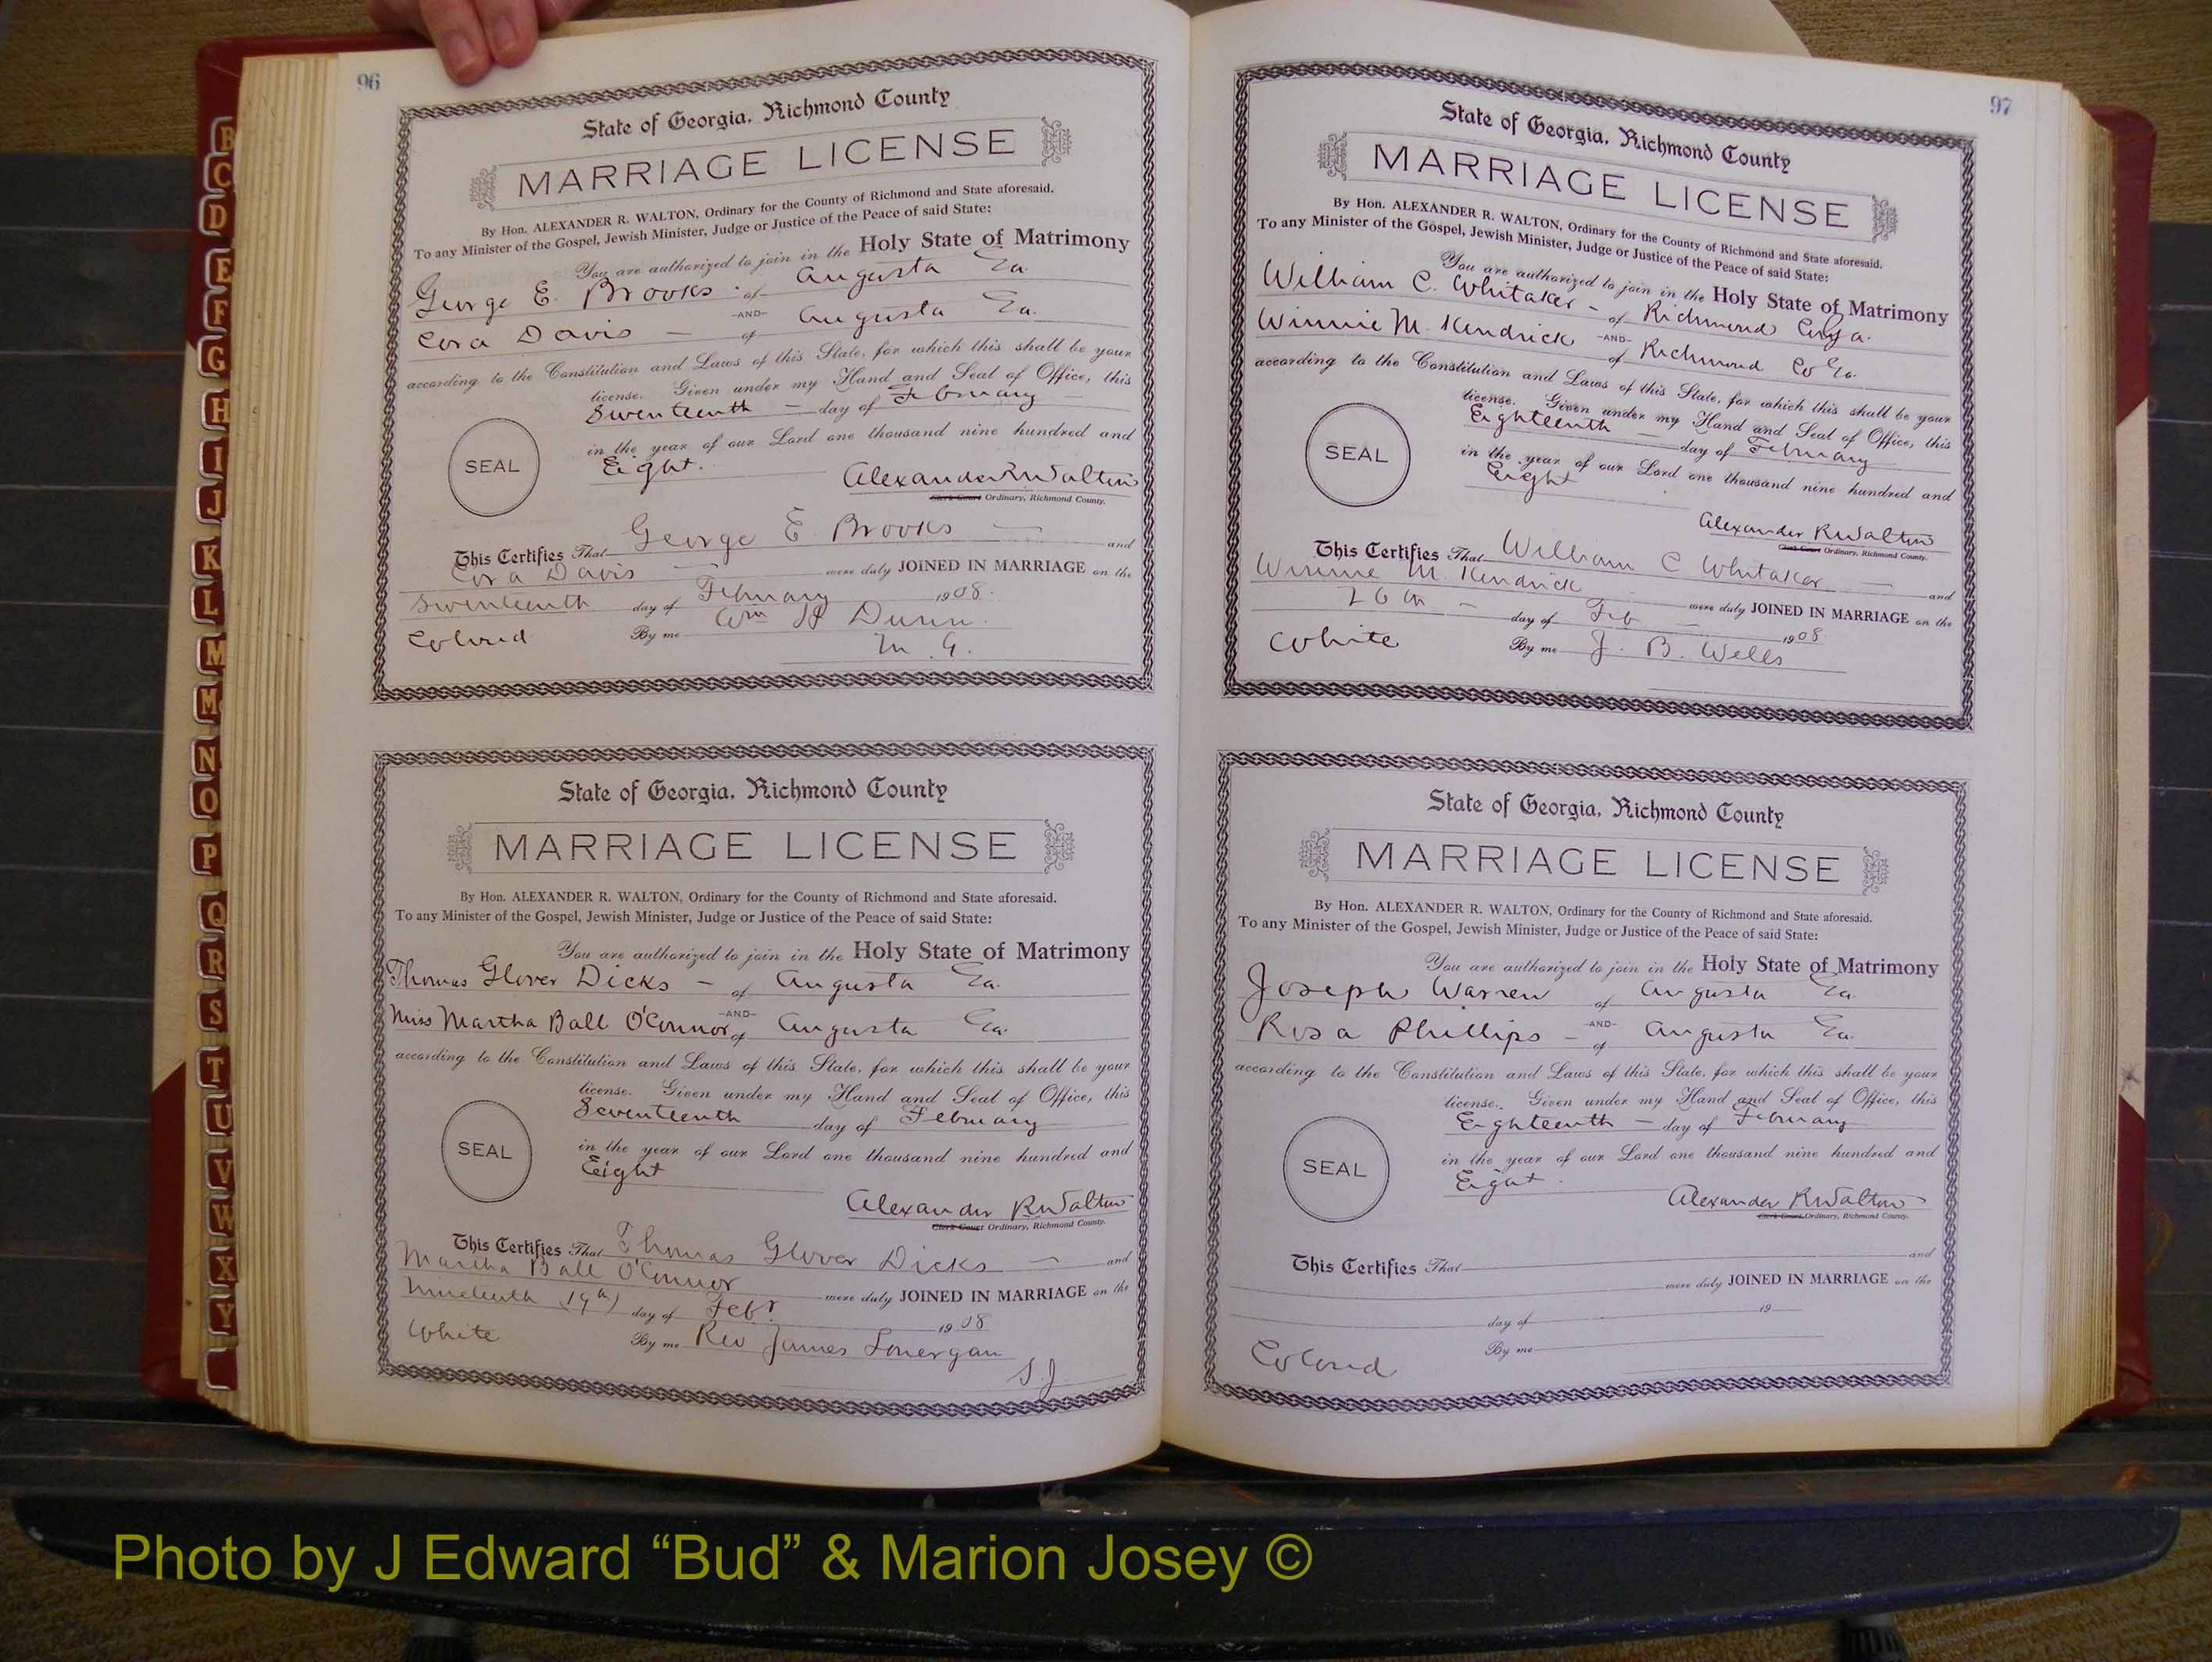 96
State of Georgia, Richmond County
MARRIAGE LICENSE
By Hon. ALEXANDER R. WALTON, Ordinary for the County of Richmond and State aforesaid.
To any Minister of the Gospel, Jewish Minister, Judge or Justice of the Peace of said State:
You are authorized to join in the Holy State of Matrimony
George E. Brooks - of Augusta Ga.
-AND-
Cora Davis - of Augusta Ga.
according to the Constitution and Laws of this State, for which this shall be your
license. Given under my Hand and Seal of Office, this
Seventeenth - day of February
in the year of our Lord one thousand nine hundred and
SEAL
Eight.
Alexander R Walton
Clerk Court Ordinary, Richmond County.
This Certifies That George E Brooks and
Cora Davis were duly JOINED IN MARRIAGE on the
Seventeenth day of February 1908.
Colored By me Wm H Dunn.
M. G.
State of Georgia, Richmond County
MARRIAGE LICENSE
By Hon. ALEXANDER R. WALTON, Ordinary for the County of Richmond and State aforesaid.
To any Minister of the Gospel, Jewish Minister, Judge or Justice of the Peace of said State:
You are authorized to join in the Holy State of Matrimony
Thomas Glover Dicks - of Augusta Ga.
-AND-
Miss Martha Ball O'Connor of Augusta Ga.
according to the Constitution and Laws of this State, for which this shall be your
license. Given under my Hand and Seal of Office, this
Seventeenth day of February
in the year of our Lord one thousand nine hundred and
SEAL
Eight
Alexander R Walton
Clerk Court Ordinary, Richmond County.
This Certifies That Thomas Glover Dicks and
Martha Ball O'Connor were duly JOINED IN MARRIAGE on the
Nineteenth (19th) day of Febr 1908
White By me Rev James Lonergan
S.J.
97
State of Georgia, Richmond County
MARRIAGE LICENSE
By Hon. ALEXANDER R. WALTON, Ordinary for the County of Richmond and State aforesaid.
To any Minister of the Gospel, Jewish Minister, Judge or Justice of the Peace of said State:
You are authorized to join in the Holy State of Matrimony
William C. Whitaker - of Richmond Co Ga.
-AND-
Winnie M. Kendrick of Richmond Co Ga.
according to the Constitution and Laws of this State, for which this shall be your
license. Given under my Hand and Seal of Office, this
Eighteenth - day of February
in the year of our Lord one thousand nine hundred and
SEAL
Eight
Alexander R Walton
Clerk Court Ordinary, Richmond County.
This Certifies That William C Whitaker and
Winnie M. Kendrick were duly JOINED IN MARRIAGE on the
26th - day of Feb 1908
White By me J. B. Wells
State of Georgia, Richmond County
MARRIAGE LICENSE
By Hon. ALEXANDER R. WALTON, Ordinary for the County of Richmond and State aforesaid.
To any Minister of the Gospel, Jewish Minister, Judge or Justice of the Peace of said State:
You are authorized to join in the Holy State of Matrimony
Joseph Warren of Augusta Ga.
-AND-
Rosa Phillips - of Augusta Ga.
according to the Constitution and Laws of this State, for which this shall be your
license. Given under my Hand and Seal of Office, this
Eighteenth - day of February
in the year of our Lord one thousand nine hundred and
SEAL
Eight.
Alexander R Walton
Clerk Court Ordinary, Richmond County.
This Certifies That and
were duly JOINED IN MARRIAGE on the
day of 19
Colored By me
B
C
D
E
F
G
H
I
J
K
L
M
Mc
N
O
P
Q
R
S
T
U
V
W
X
Y
Photo by J Edward “Bud” & Marion Josey ©